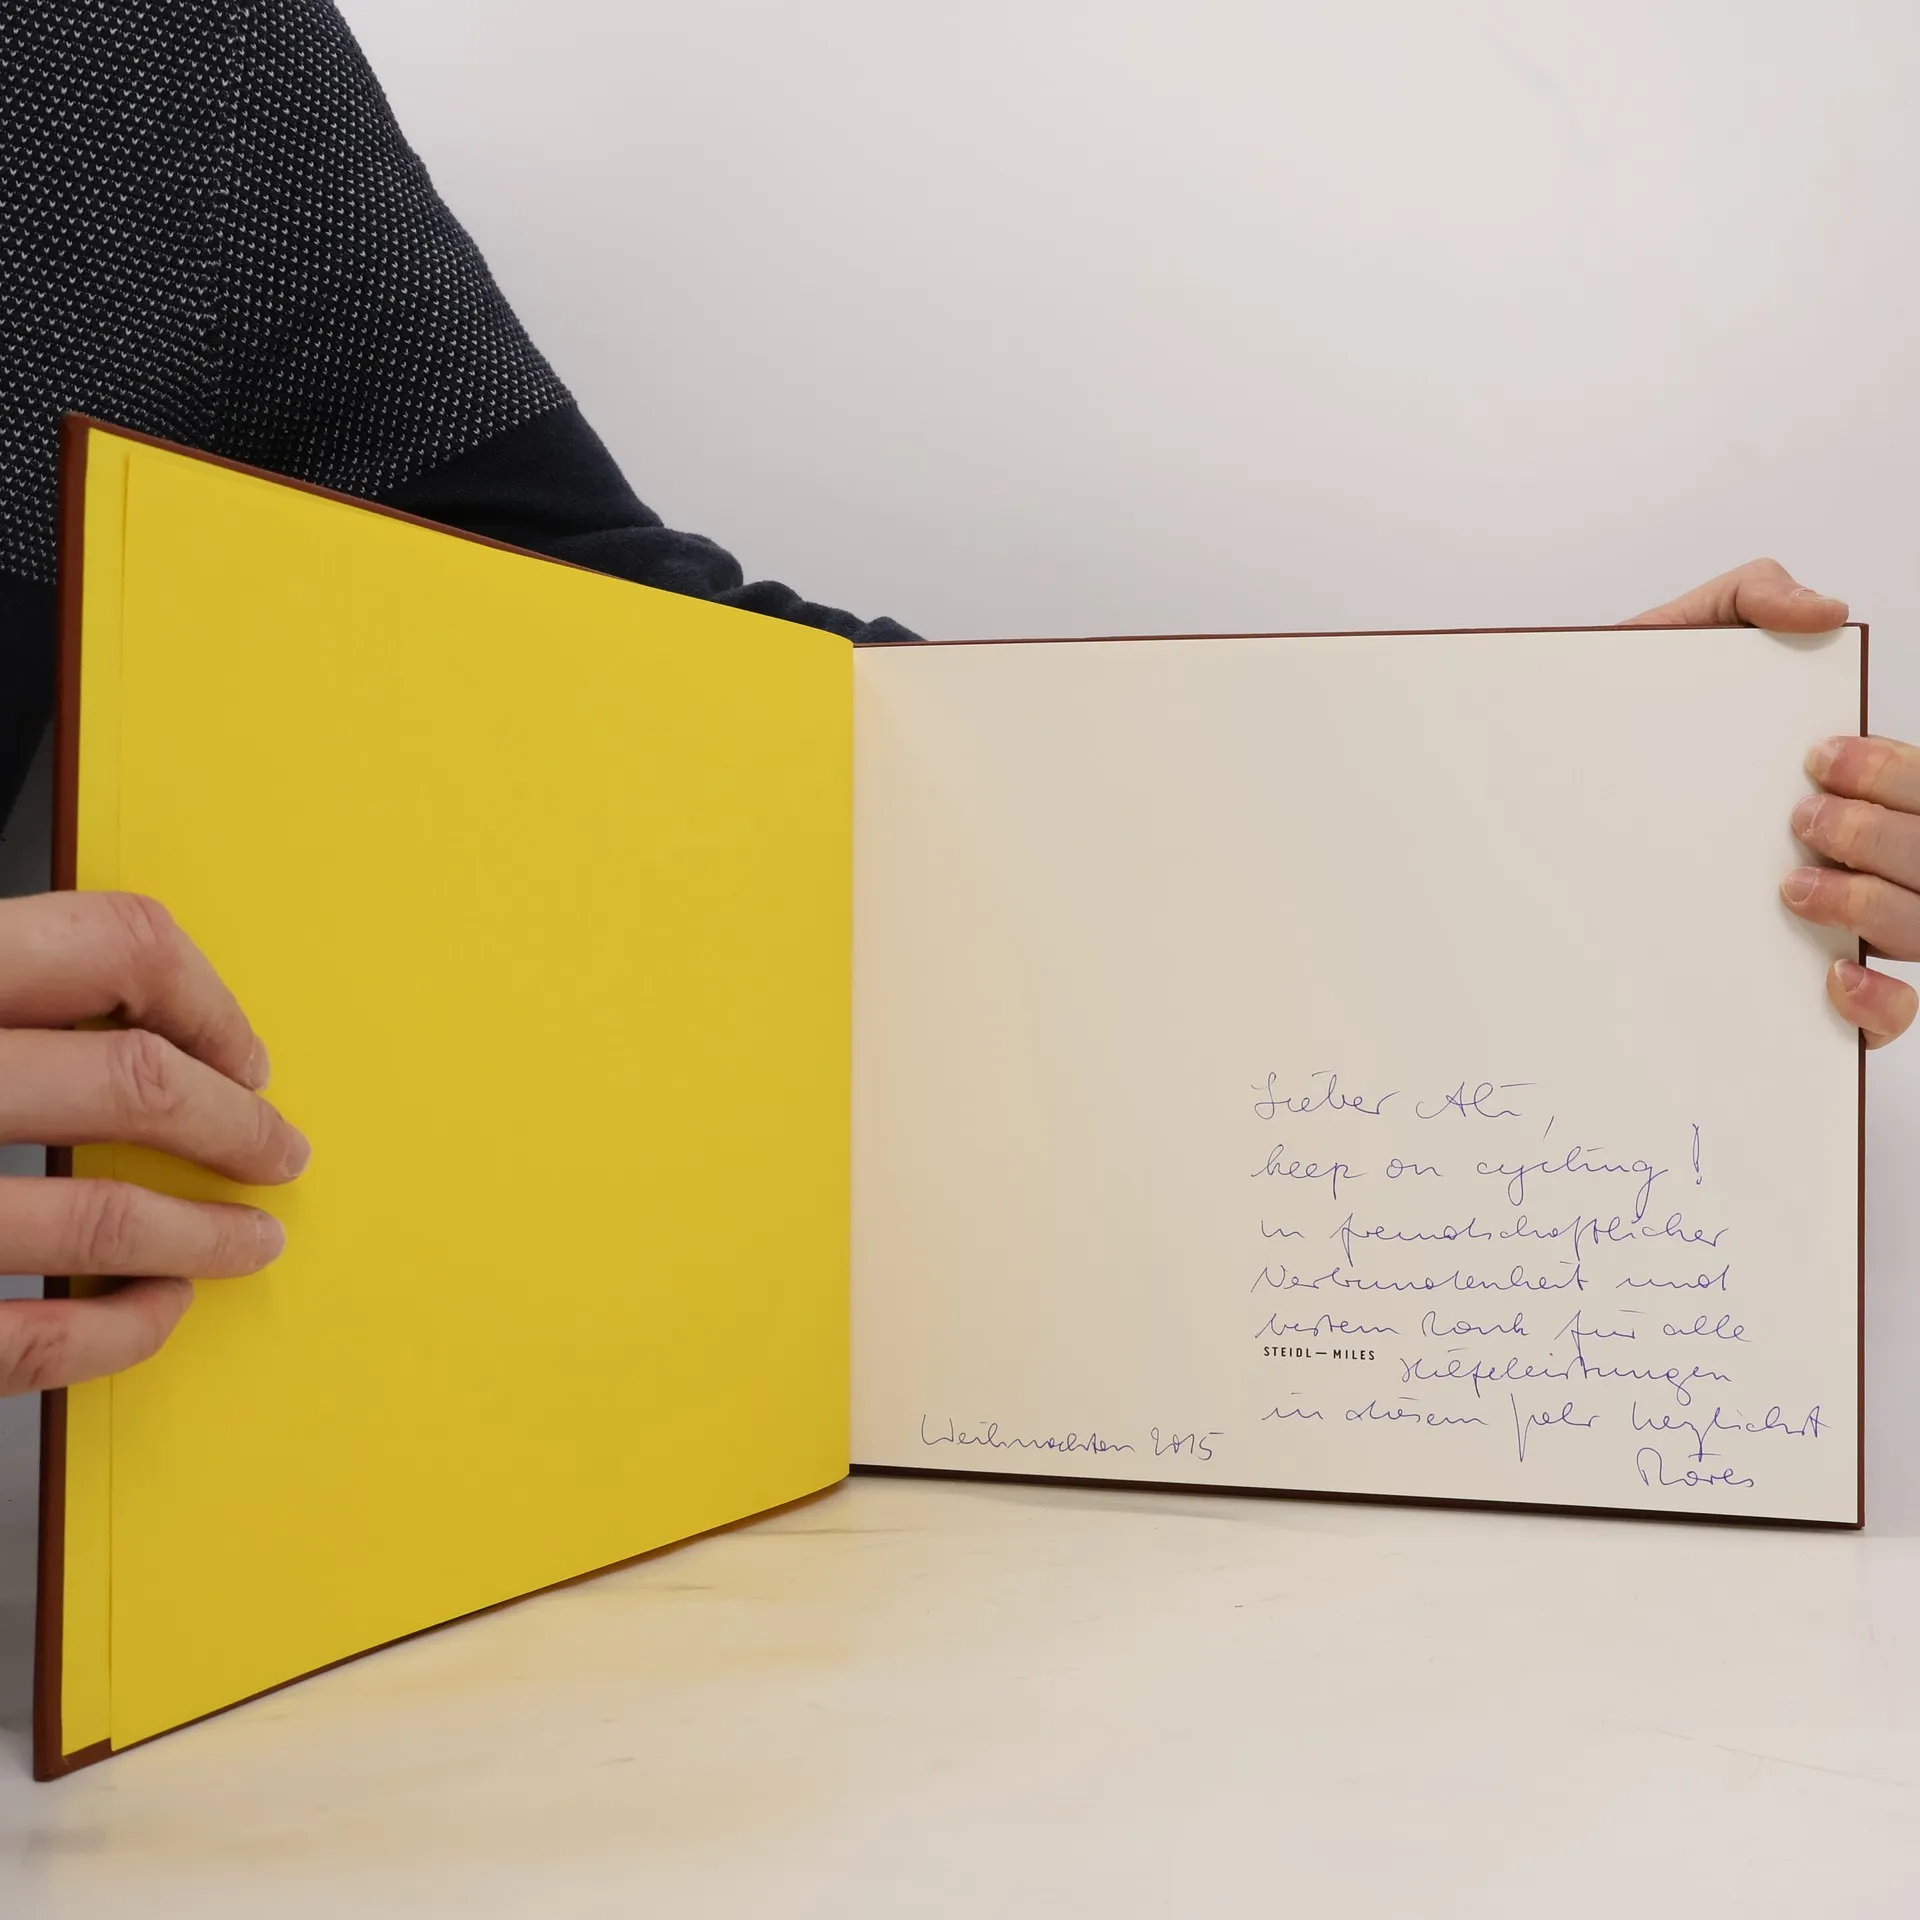 Lieber Ali,
keep on cycling!
in freundschaftlicher
Verbundenheit und
bestem Dank für alle
STEIDL—MILES
Hilfeleistungen
in diesem Jahr herzlichst
Weihnachten 2015